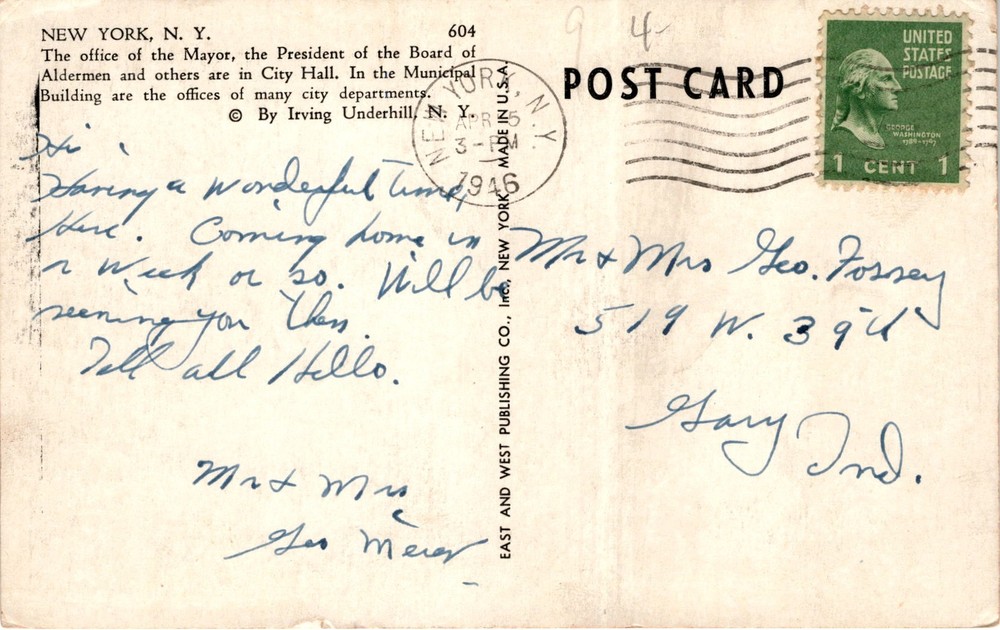 NEW YORK, N. Y. 604
The office of the Mayor, the President of the Board of
Aldermen and others are in City Hall. In the Municipal
Building are the offices of many city departments.
© By Irving Underhill, N. Y.
Hi
Having a wonderful time,
Here. Coming home in
a week or so. Will be
seeining you then.
Tell all Hello.
Mr & Mrs
Geo
EAST AND WEST PUBLISHING CO., Inc., NEW YORK MADE IN U.S.A.
9 4-
POST CARD
NEW YORK, N.Y.
APR 5
3-PM
1946
UNITED
STATES
POSTAGE
GEORGE
WASHINGTON
1 CENT 1
Mr & Mrs Geo. Fossey
519 W. 39th
Gary
Ind.